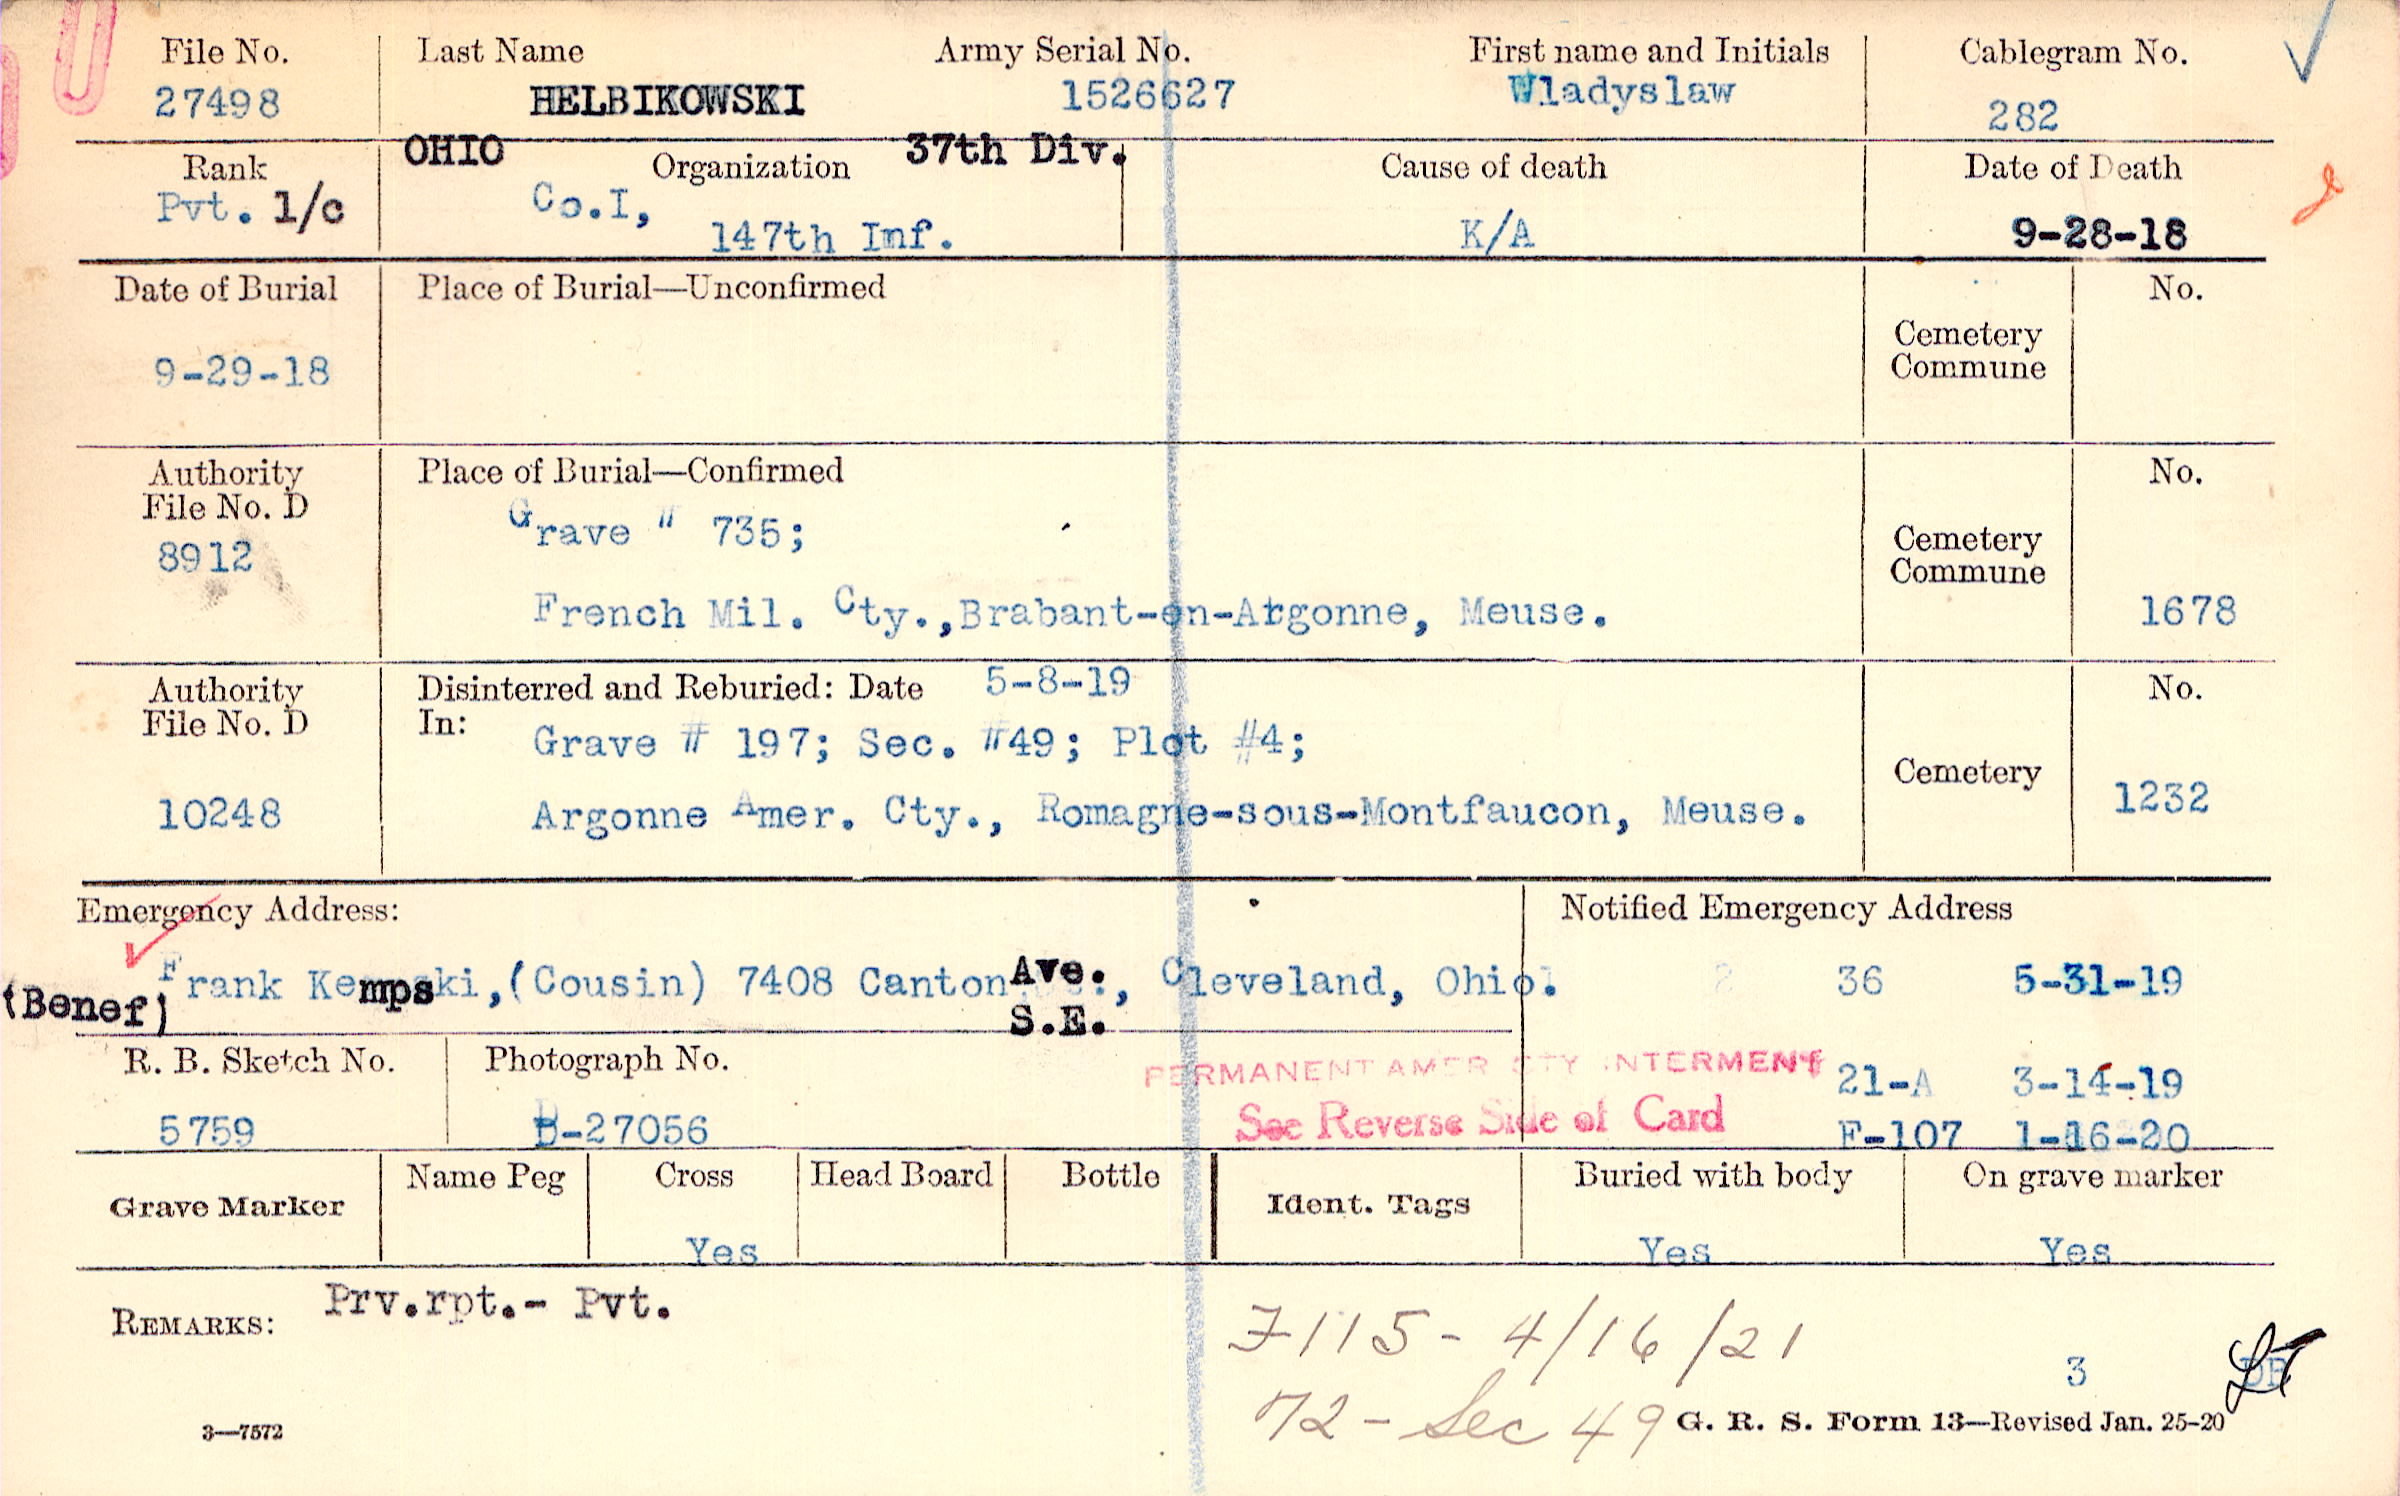 File No. Last Name Army Serial No. First name and Initials Cablegram No.
27498 HELBIKOWSKI 1526627 Wladyslaw 282
Rank OHIO Organization 37th Div. Cause of death Date of Death
Pvt. 1/c Co.I, 147th Inf. K/A 9-28-18
Date of Burial Place of Burial—Unconfirmed No.
9-29-18 Cemetery
Commune
Authority Place of Burial—Confirmed No.
File No. D Grave # 735; Cemetery
8912 Commune
French Mil. Cty.,Brabant-en-Argonne, Meuse. 1678
Authority Disinterred and Reburied: Date 5-8-19 No.
File No. D In: Grave # 197; Sec. #49; Plot #4; Cemetery
10248 Argonne Amer. Cty., Romagne-sous-Montfaucon, Meuse. 1232
Emergency Address: Notified Emergency Address
(Benef) Frank Kempski,(Cousin) 7408 Canton Ave., Cleveland, Ohio. 36 5-31-19
S.E.
R. B. Sketch No. Photograph No. PERMANENT AMER CTY INTERMENT 21-A 3-14-19
5759 B-27056 See Reverse Side of Card F-107 1-16-20
Grave Marker Name Peg Cross Head Board Bottle Ident. Tags Buried with body On grave marker
Yes Yes Yes
REMARKS: Prv.rpt.- Pvt.
F115 - 4/16/21
3
72 - Sec 49
3—7572 G. R. S. Form 13—Revised Jan. 25-20